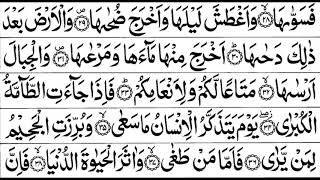 فَسَوّٰىهَا ﴿٢٨﴾ وَاَغْطَشَ لَيْلَهَا وَاَخْرَجَ ضُحٰىهَا ﴿٢٩﴾ وَالْاَرْضَ بَعْدَ
ذٰلِكَ دَحٰىهَا ﴿٣٠﴾ اَخْرَجَ مِنْهَا مَآءَهَا وَمَرْعٰىهَا ﴿٣١﴾ وَالْجِبَالَ
اَرْسٰىهَا ﴿٣٢﴾ مَتَاعًا لَّكُمْ وَلِاَنْعَامِكُمْ ﴿٣٣﴾ فَاِذَا جَآءَتِ الطَّآمَّةُ
الْكُبْرٰى ﴿٣٤﴾ يَوْمَ يَتَذَكَّرُ الْاِنْسَانُ مَا سَعٰى ﴿٣٥﴾ وَبُرِّزَتِ الْجَحِيْمُ
لِمَنْ يَّرٰى ﴿٣٦﴾ فَاَمَّا مَنْ طَغٰى ﴿٣٧﴾ وَاٰثَرَ الْحَيٰوةَ الدُّنْيَا ﴿٣٨﴾ فَاِنَّ